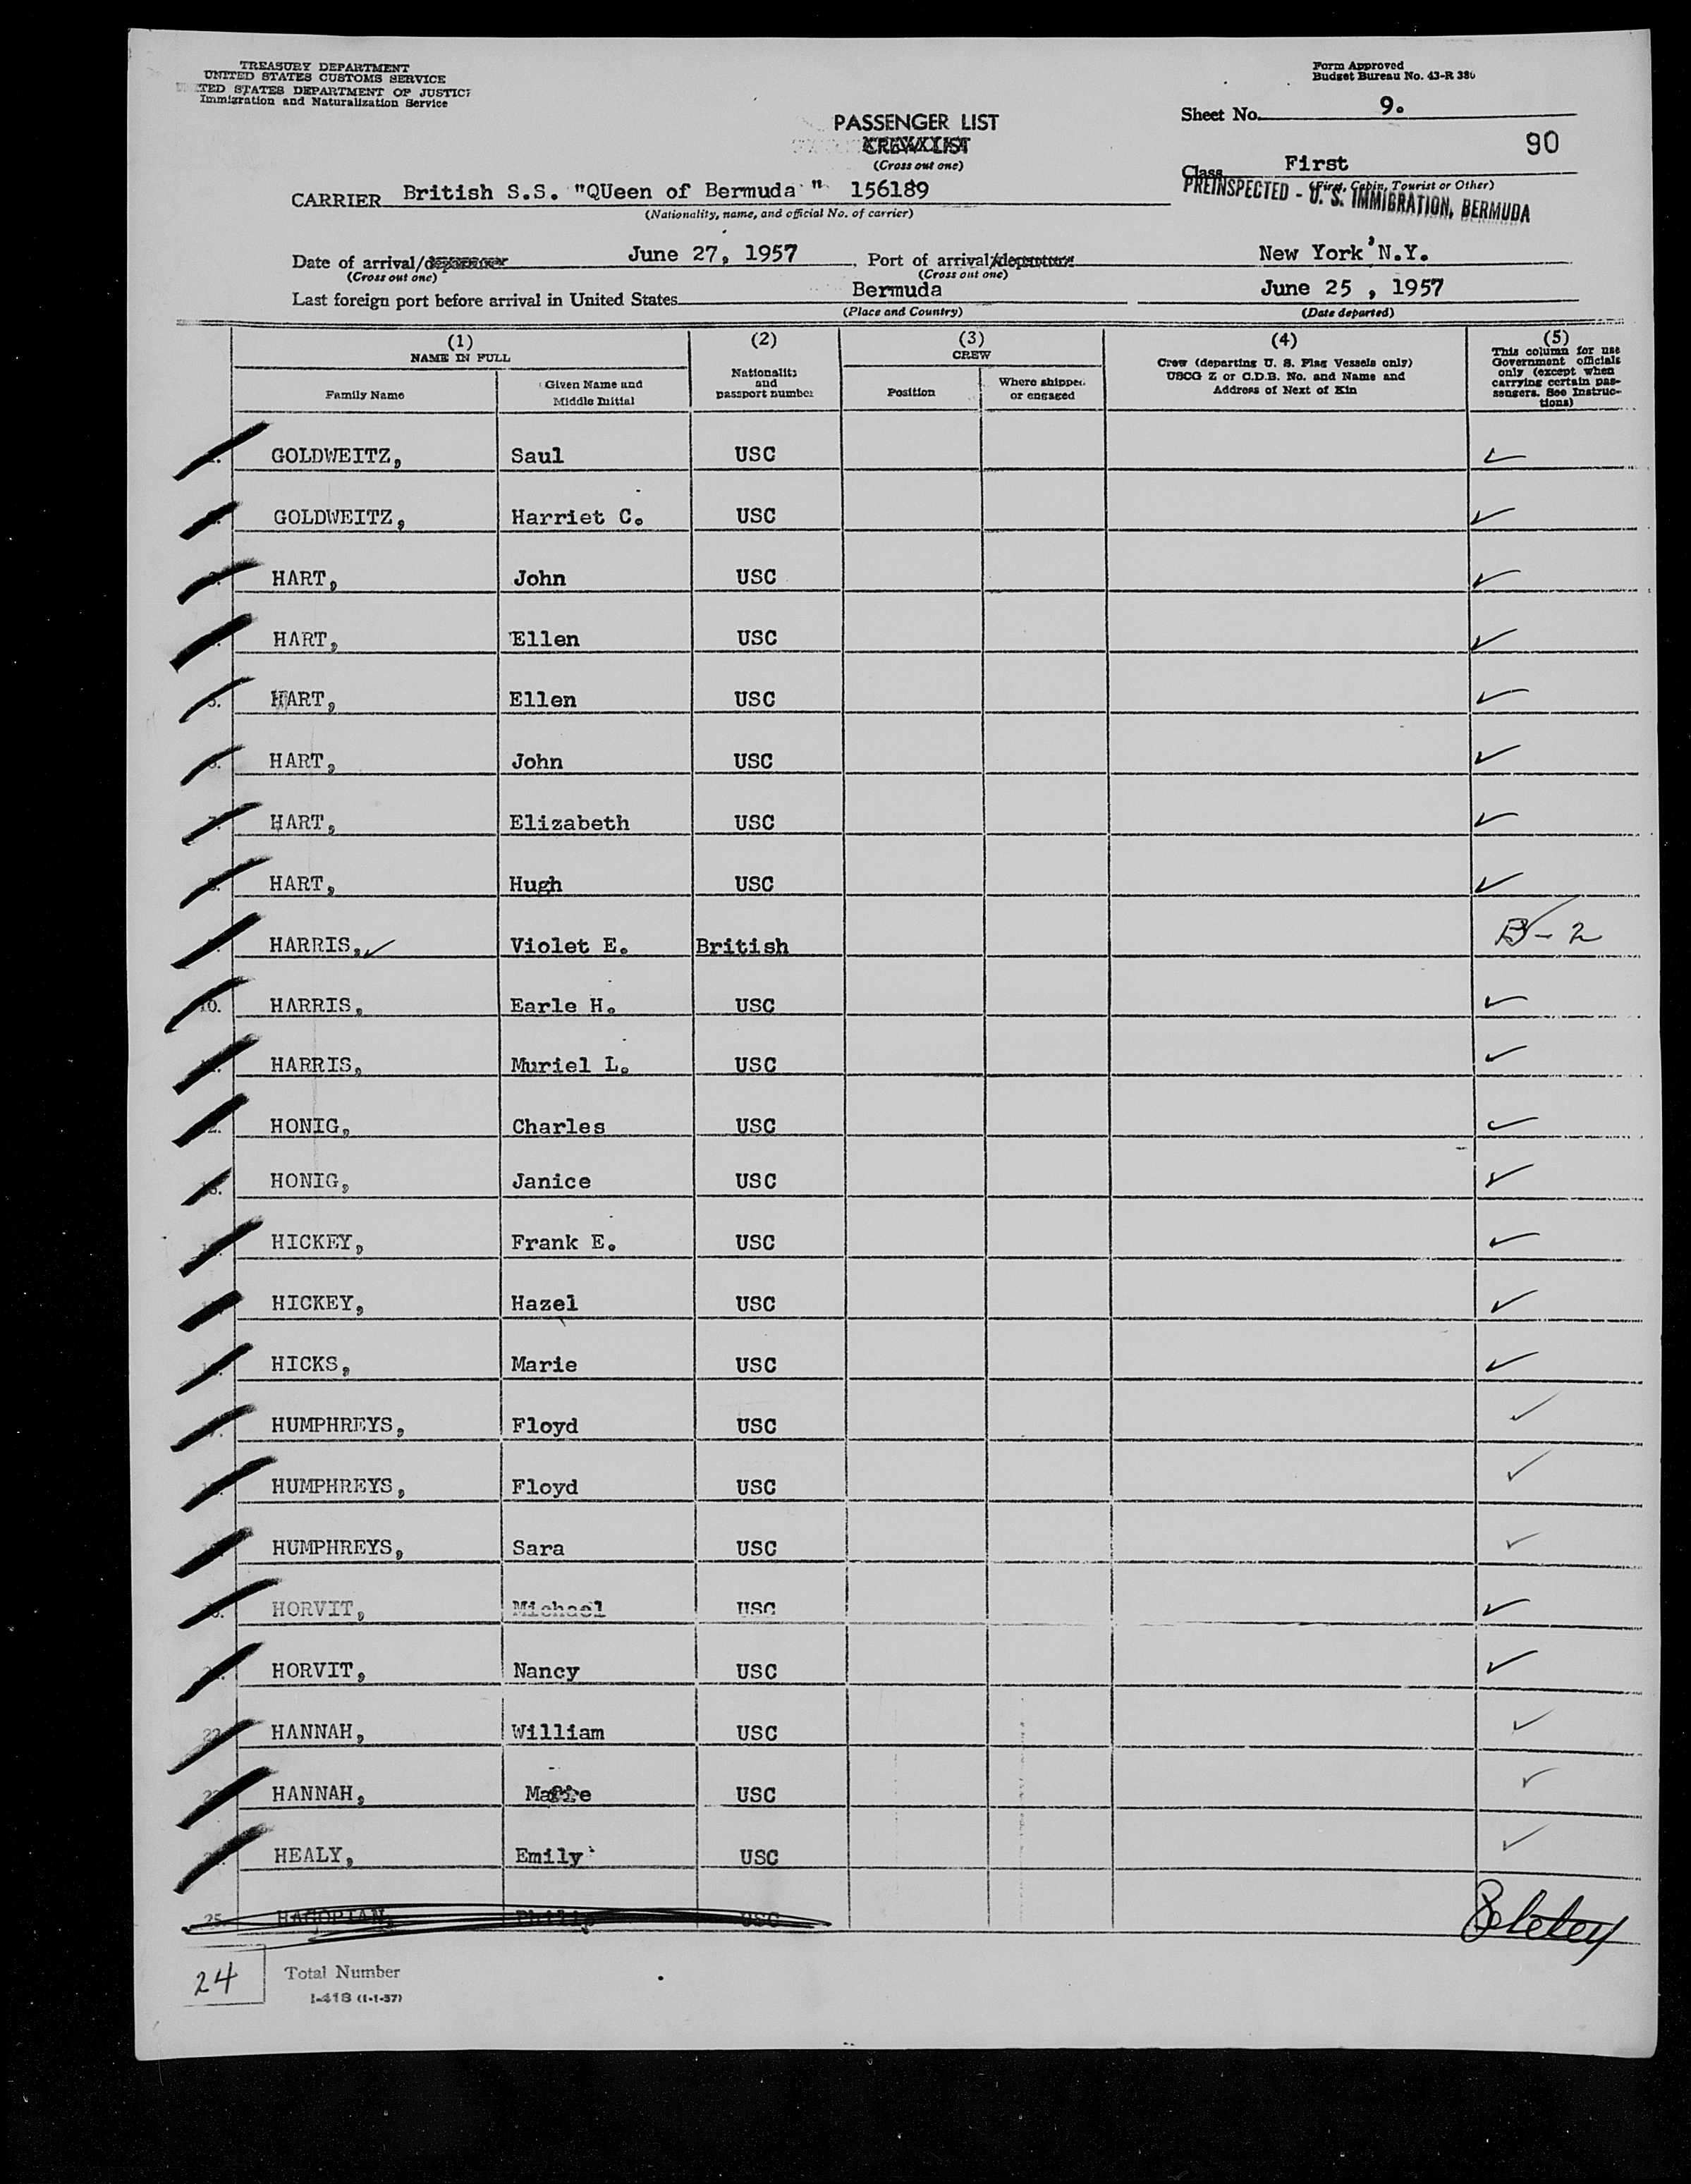 TREASURY DEPARTMENT
UNITED STATES CUSTOMS SERVICE
UNITED STATES DEPARTMENT OF JUSTICE
Immigration and Naturalization Service
Form Approved
Budget Bureau No. 43-R 380
Sheet No. 9.
90
PASSENGER LIST
CREW LIST
(Cross out one)
Class First
(First, Cabin, Tourist or Other)
PREINSPECTED - U. S. IMMIGRATION, BERMUDA
CARRIER British S.S. "QUeen of Bermuda " 156189
(Nationality, name, and official No. of carrier)
Date of arrival/departure June 27, 1957 Port of arrival/departure New York N.Y.
(Cross out one) (Cross out one)
Last foreign port before arrival in United States Bermuda June 25 , 1957
(Place and Country) (Date departed)
(1) NAME IN FULL
Family Name
Given Name and Middle Initial
(2)
Nationality and passport number
(3) CREW
Position
Where shipped or engaged
(4)
Crew (departing U. S. Flag Vessels only)
USCG Z or C.D.B. No. and Name and
Address of Next of Kin
(5)
This column for use
Government officials
only (except when
carrying certain pas-
sengers. See Instruc-
tions)
GOLDWEITZ, Saul USC ✓
GOLDWEITZ, Harriet C. USC ✓
HART, John USC ✓
HART, Ellen USC ✓
5. HART, Ellen USC ✓
HART, John USC ✓
7. HART, Elizabeth USC ✓
8. HART, Hugh USC ✓
HARRIS, ✓ Violet E. British B-2
10. HARRIS, Earle H. USC ✓
HARRIS, Muriel L. USC ✓
HONIG, Charles USC ✓
13. HONIG, Janice USC ✓
HICKEY, Frank E. USC ✓
HICKEY, Hazel USC ✓
HICKS, Marie USC ✓
HUMPHREYS, Floyd USC ✓
HUMPHREYS, Floyd USC ✓
HUMPHREYS, Sara USC ✓
HORVIT, Michael USC ✓
HORVIT, Nancy USC ✓
22. HANNAH, William USC ✓
HANNAH, USC ✓
HEALY, Emily USC ✓
25. HAGOPIAN, Philip USC
24 Total Number
I-418 (1-1-57)